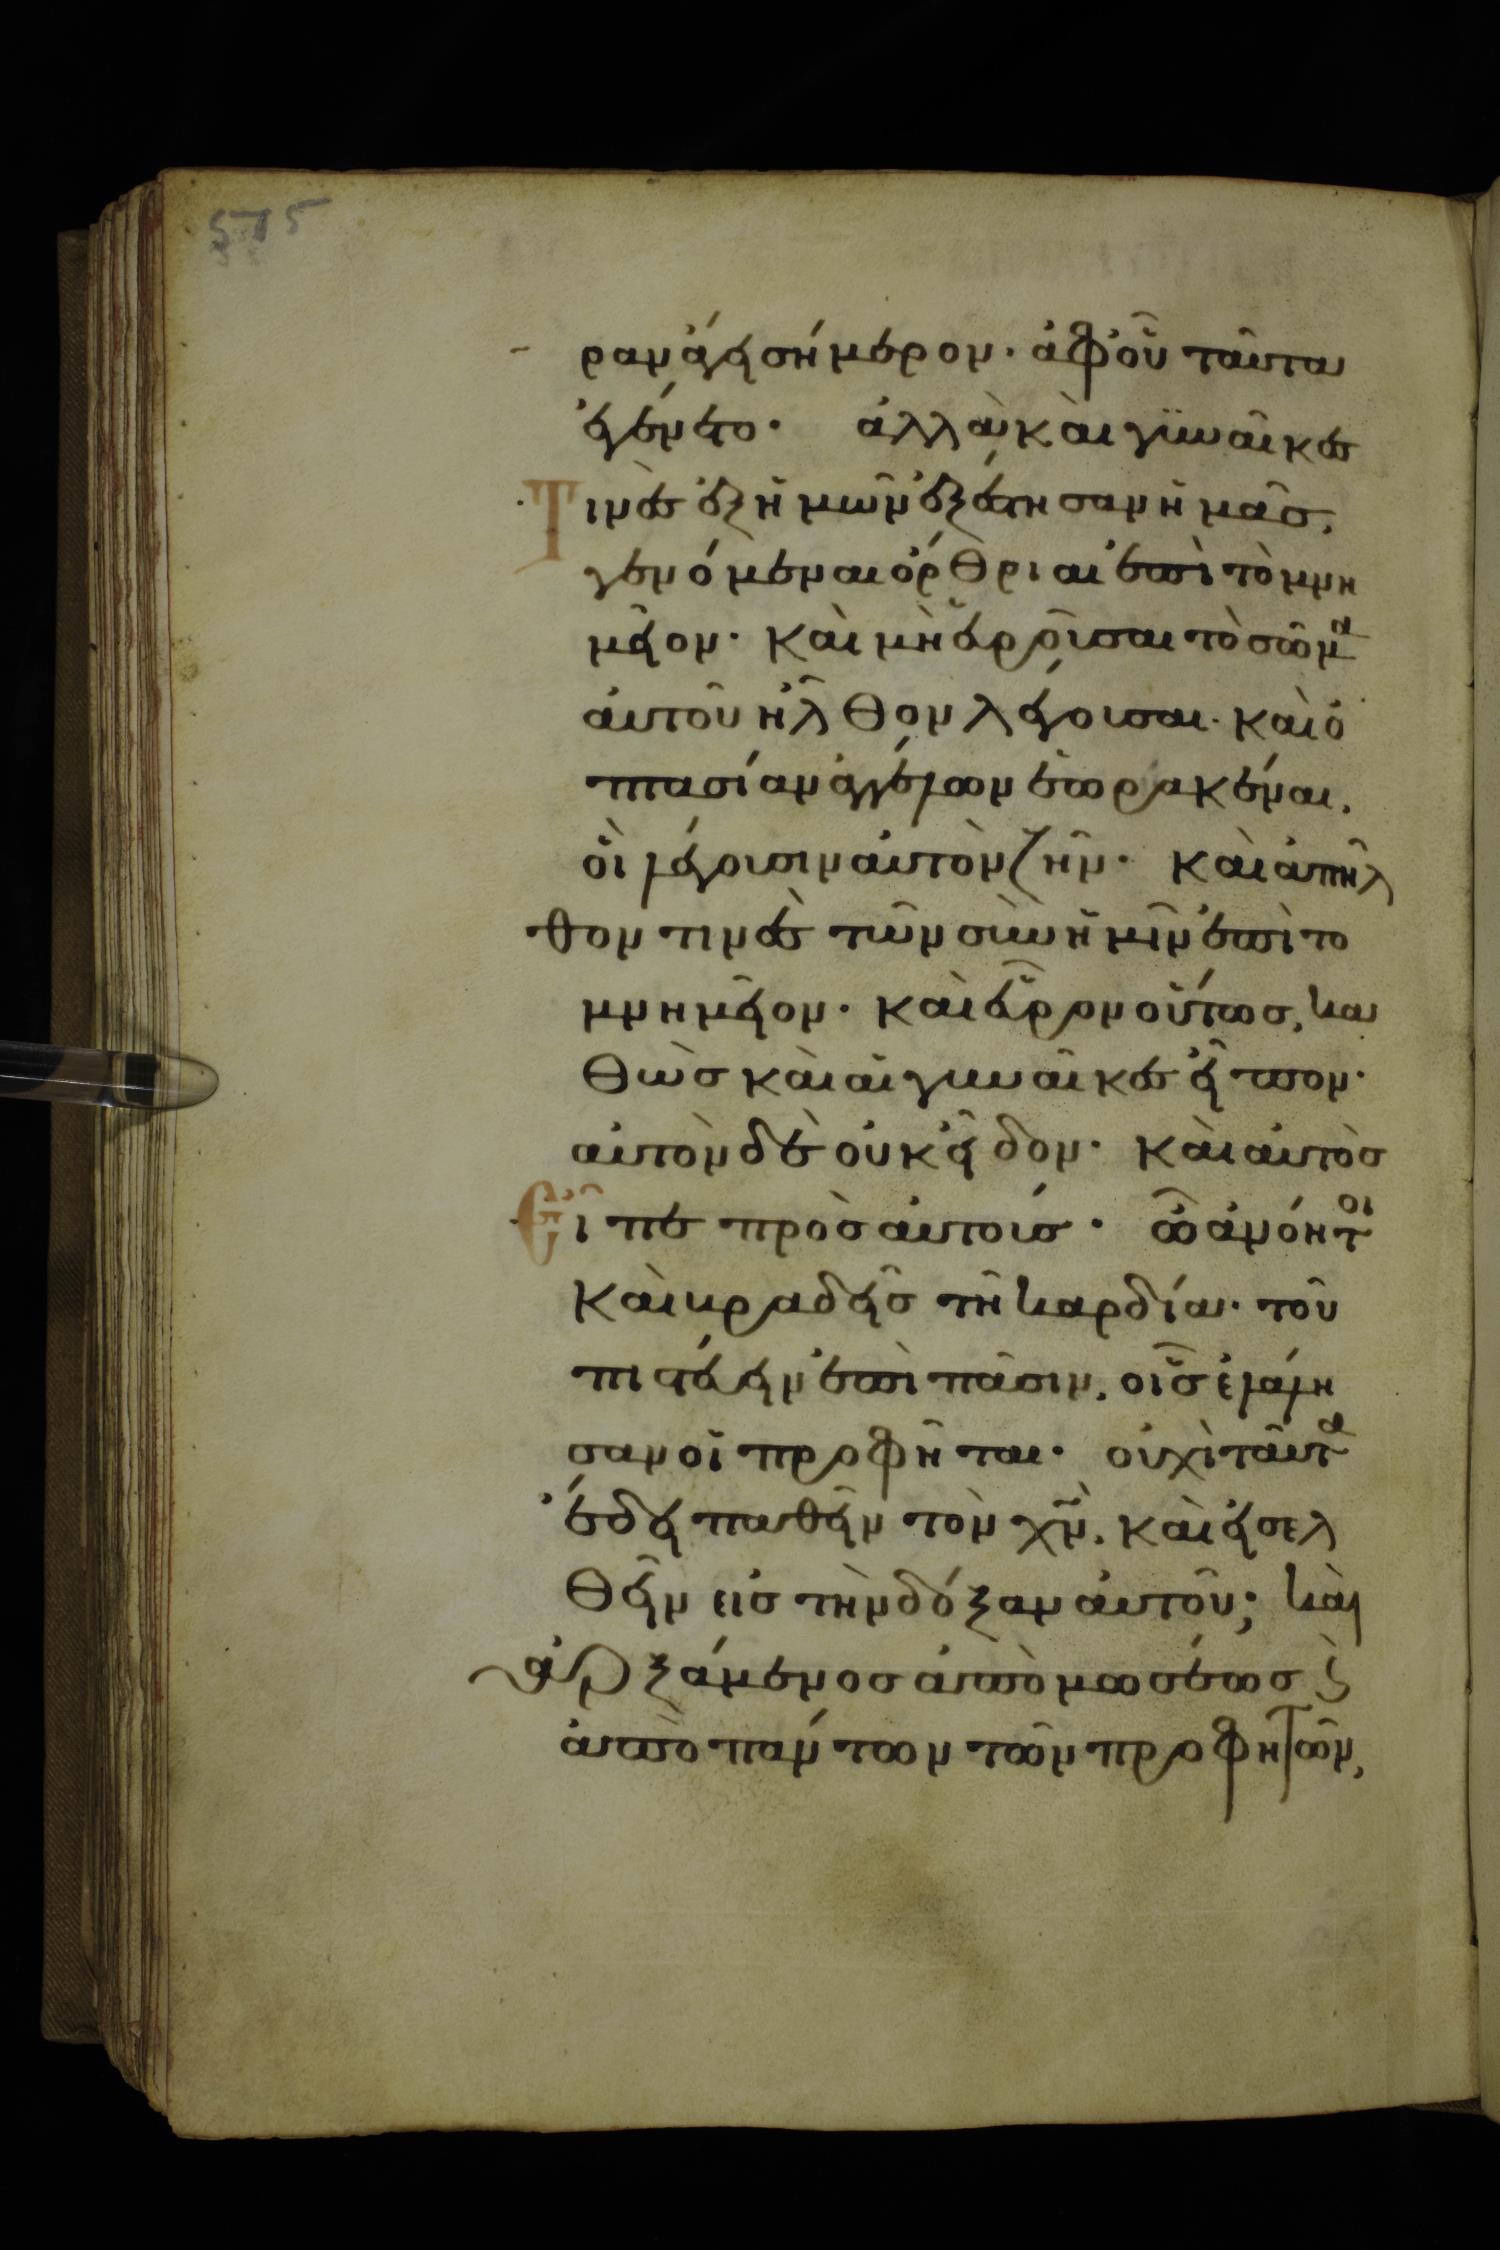 575
ραν ἄγει σήμερον· ἀφ οὗ ταῦτα
ἐγένετο· ἀλλὰ καὶ γϋναῖκες
Τινὲς ἐξ ἡμῶν ἐξέστησαν ἡμᾶς,
γενόμεναι ὄρθριαι ἐπὶ τὸ μνη
μεῖον· καὶ μὴ εὑροῦσαι τὸ σῶμα
αὐτοῦ ἦλθον λέγουσαι· καὶ ὀ
πτασίαν ἀγγέλων ἑωρακέναι.
οἳ λέγουσιν αὐτὸν ζῆν· καὶ ἀπῆλ
θον τινὲς τῶν σὺν ἡμῖν ἐπὶ το
μνημεῖον· καὶ εὗρον οὕτως, κα
θὼς καὶ αἱ γυναῖκες εἶπον·
αὐτὸν δὲ οὐκ εἶδον· καὶ αὐτὸς
Εἶπε πρὸς αὐτούς· ὦ ἀνόητοι
καὶ βραδεῖς τῆ καρδία· τοῦ
πιστέυειν ἐπὶ πᾶσιν, οἷς ἐλάλη
σαν οἱ προφῆται· οὐχὶ ταῦτα
ἔδει παθεῖν τὸν χν̅. καὶ εἰσελ
θεῖν εἰς τὴν δόξαν αὐτοῦ; καὶ
ἀρξάμενος ἀπὸ μωσέως ϗ
ἀπὸ πάντων τῶν προφητῶν,